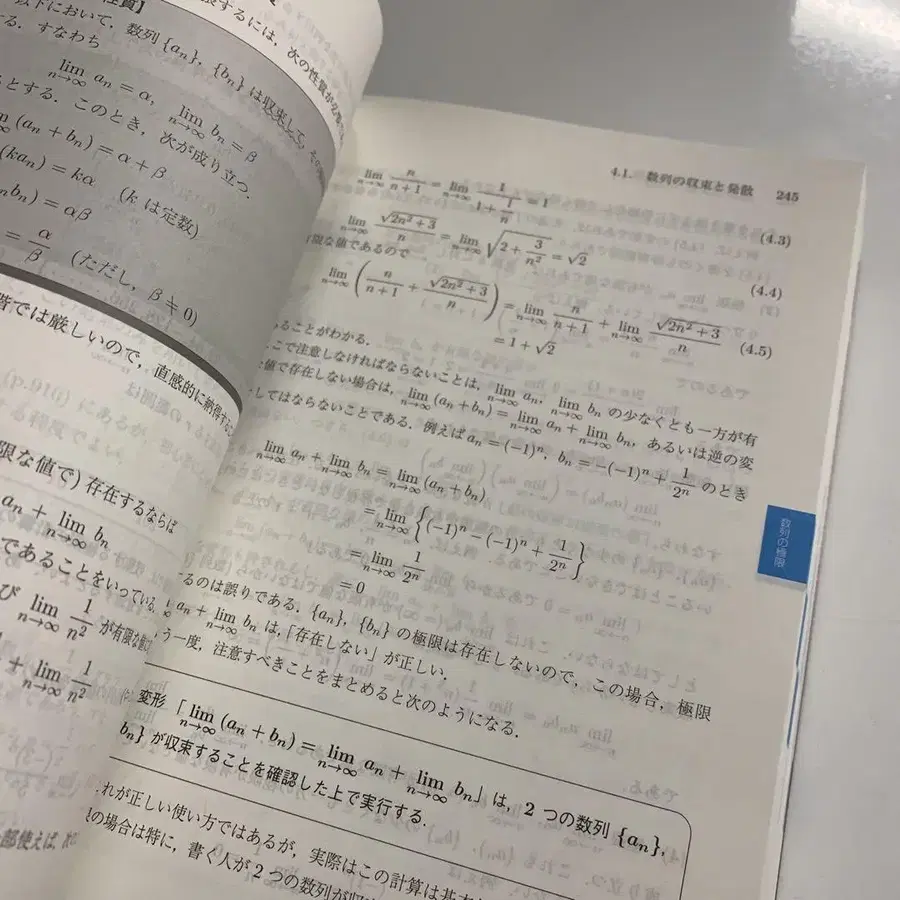 性質】
以下において，数列 {aₙ}，{bₙ} は収束して，その
する．すなわち
lim_{n→∞} aₙ = α， lim_{n→∞} bₙ = β
とする．このとき，次が成り立つ．
(aₙ + bₙ) = α + β
(kaₙ) = kα （k は定数）
bₙ) = αβ
= α/β （ただし，β ≠ 0）
階では厳しいので，直感的に納得する
限な値で）存在するならば
aₙ + lim_{n→∞} bₙ
であることをいっている．
び lim_{n→∞} 1/n² が有限な値
+ lim_{n→∞} 1/n²
4.1. 数列の収束と発散 245
lim_{n→∞} n/(n+1) = lim_{n→∞} 1/(1 + 1/n) = 1 (4.3)
lim_{n→∞} √(2n²+3)/n = lim_{n→∞} √(2 + 3/n²) = √2 (4.4)
有限な値であるので
lim_{n→∞} (n/(n+1) + √(2n²+3)/n) = lim_{n→∞} n/(n+1) + lim_{n→∞} √(2n²+3)/n
= 1 + √2 (4.5)
ることがわかる．
こで注意しなければならないことは，lim_{n→∞} aₙ，lim_{n→∞} bₙ の少なくとも一方が有
な値で存在しない場合は，lim_{n→∞} (aₙ + bₙ) = lim_{n→∞} aₙ + lim_{n→∞} bₙ，あるいは逆の変
してはならないことである．例えば aₙ = (−1)ⁿ，bₙ = −(−1)ⁿ + 1/2ⁿ のとき
lim_{n→∞} aₙ + lim_{n→∞} bₙ = lim_{n→∞} (aₙ + bₙ)
= lim_{n→∞} {(−1)ⁿ − (−1)ⁿ + 1/2ⁿ}
= lim_{n→∞} 1/2ⁿ
= 0
るのは誤りである．{aₙ}，{bₙ} の極限は存在しないので，この場合，極限
aₙ + lim_{n→∞} bₙ は，「存在しない」が正しい．
う一度，注意すべきことをまとめると次のようになる．
変形「lim_{n→∞} (aₙ + bₙ) = lim_{n→∞} aₙ + lim_{n→∞} bₙ」は，2 つの数列 {aₙ}，
bₙ} が収束することを確認した上で実行する．
れが正しい使い方ではあるが，実際はこの計算は基本
の場合は特に，書く人が 2 つの数列が収
数列の極限